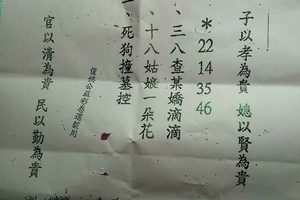 子以孝為貴 媳以賢為貴
*
22
14
35
46
、三八查某嬌滴滴
、十八姑娘一朵花
、死狗撞墓控
僅供公益彩卷選號用
官以清為貴 民以勤為貴